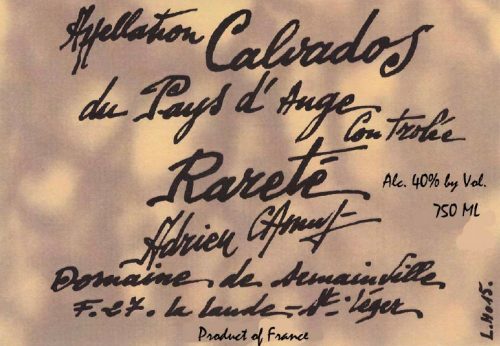 Appellation Calvados
du Pays d'Auge
Controlée
Rareté
Adrien Camut
Domaine de Semainville
F. 27. La Lande-St. Léger
Alc. 40% by Vol.
750 ML
Product of France